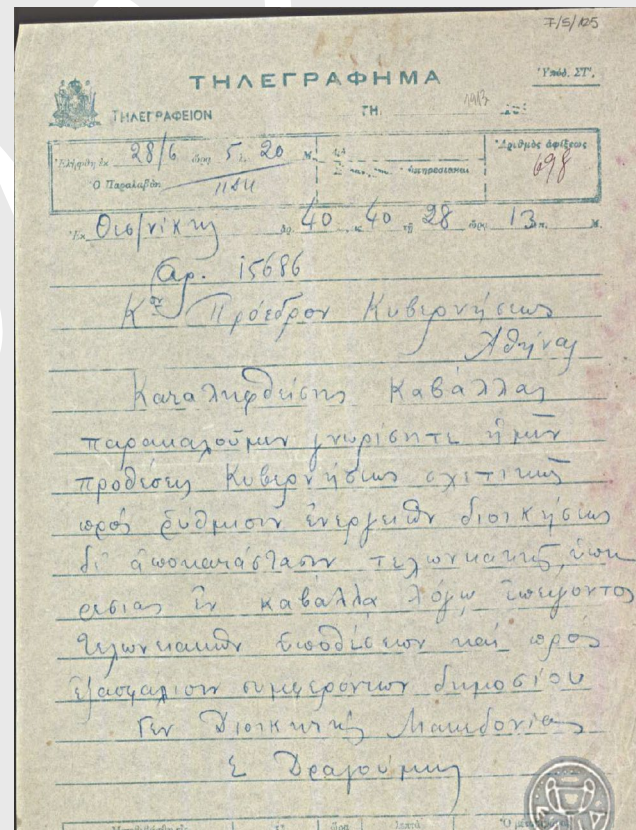 7/5/125
ΤΗΛΕΓΡΑΦΗΜΑ
Ὑπόδ. ΣΤ'.
ΤΗΛΕΓΡΑΦΕΙΟΝ
ΤΗ.
28/6 5 20 Μ.
Ἀριθμὸς ἀφίξεως
698
Ὁ Παραλαβὼν
Ἐκ Θεσ/νίκης 40 40 τῇ 28 13 Μ.
Αρ. 15686
Κον Πρόεδρον Κυβερνήσεως
Αθήνας
Καταληφθείσης Καβάλλας
παρακαλοῦμεν γνωρίσητε ἡμῖν
προθέσεις Κυβερνήσεως σχετικῶς
πρὸς ρύθμισιν ἐνεργειῶν διοικήσεως
δι' ἀποκατάστασιν τελωνιακῆς ὑπη
ρεσίας ἐν Καβάλλα λόγῳ ἐπείγοντος
τελωνιακῶν καὶ πρὸς
ἐξασφάλισιν συμφερόντων δημοσίου
Γεν Διοικητὴς Μακεδονίας
Σ Δραγούμης